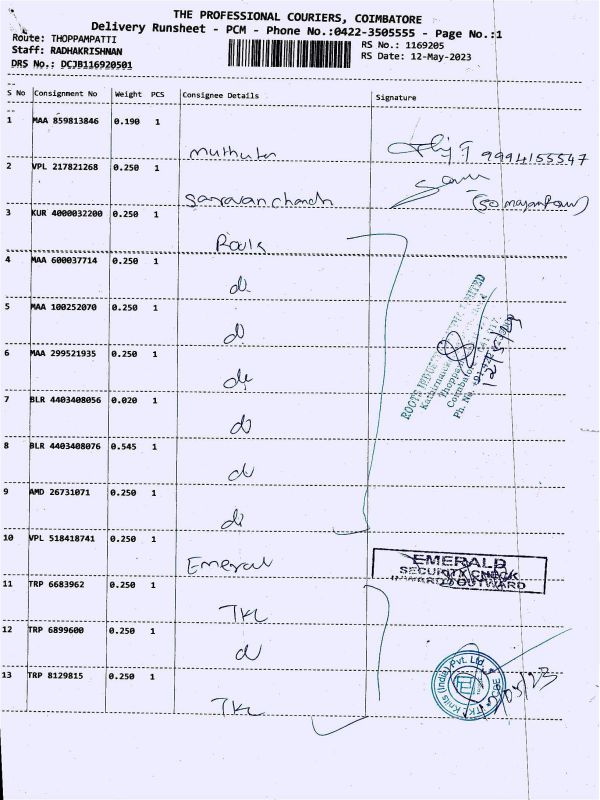 THE PROFESSIONAL COURIERS, COIMBATORE
Delivery Runsheet - PCM - Phone No.:0422-3505555 - Page No.:1
Route: THOPPAMPATTI
Staff: RADHAKRISHNAN
DRS No.: DCJB116920501
RS No.: 1169205
RS Date: 12-May-2023
S No Consignment No Weight PCS Consignee Details Signature
1 MAA 859813846 0.190 1
9994155547
2 VPL 217821268 0.250 1
Saravanchandh
3 KUR 4000032200 0.250 1
Roots
4 MAA 600037714 0.250 1
do
5 MAA 100252070 0.250 1
do
6 MAA 299521935 0.250 1
do
7 BLR 4403408056 0.020 1
do
8 BLR 4403408076 0.545 1
do
9 AMD 26731071 0.250 1
do
ROOTS INDUSTRIES LIMITED
Thoppam
Coimbatore
Ph. No.
10 VPL 518418741 0.250 1
Emerald
EMERALD
SECURITY CHECK
INWARD / OUTWARD
11 TRP 6683962 0.250 1
TKL
12 TRP 6899600 0.250 1
do
13 TRP 8129815 0.250 1
TKL
Knits (India) Pvt. Ltd.